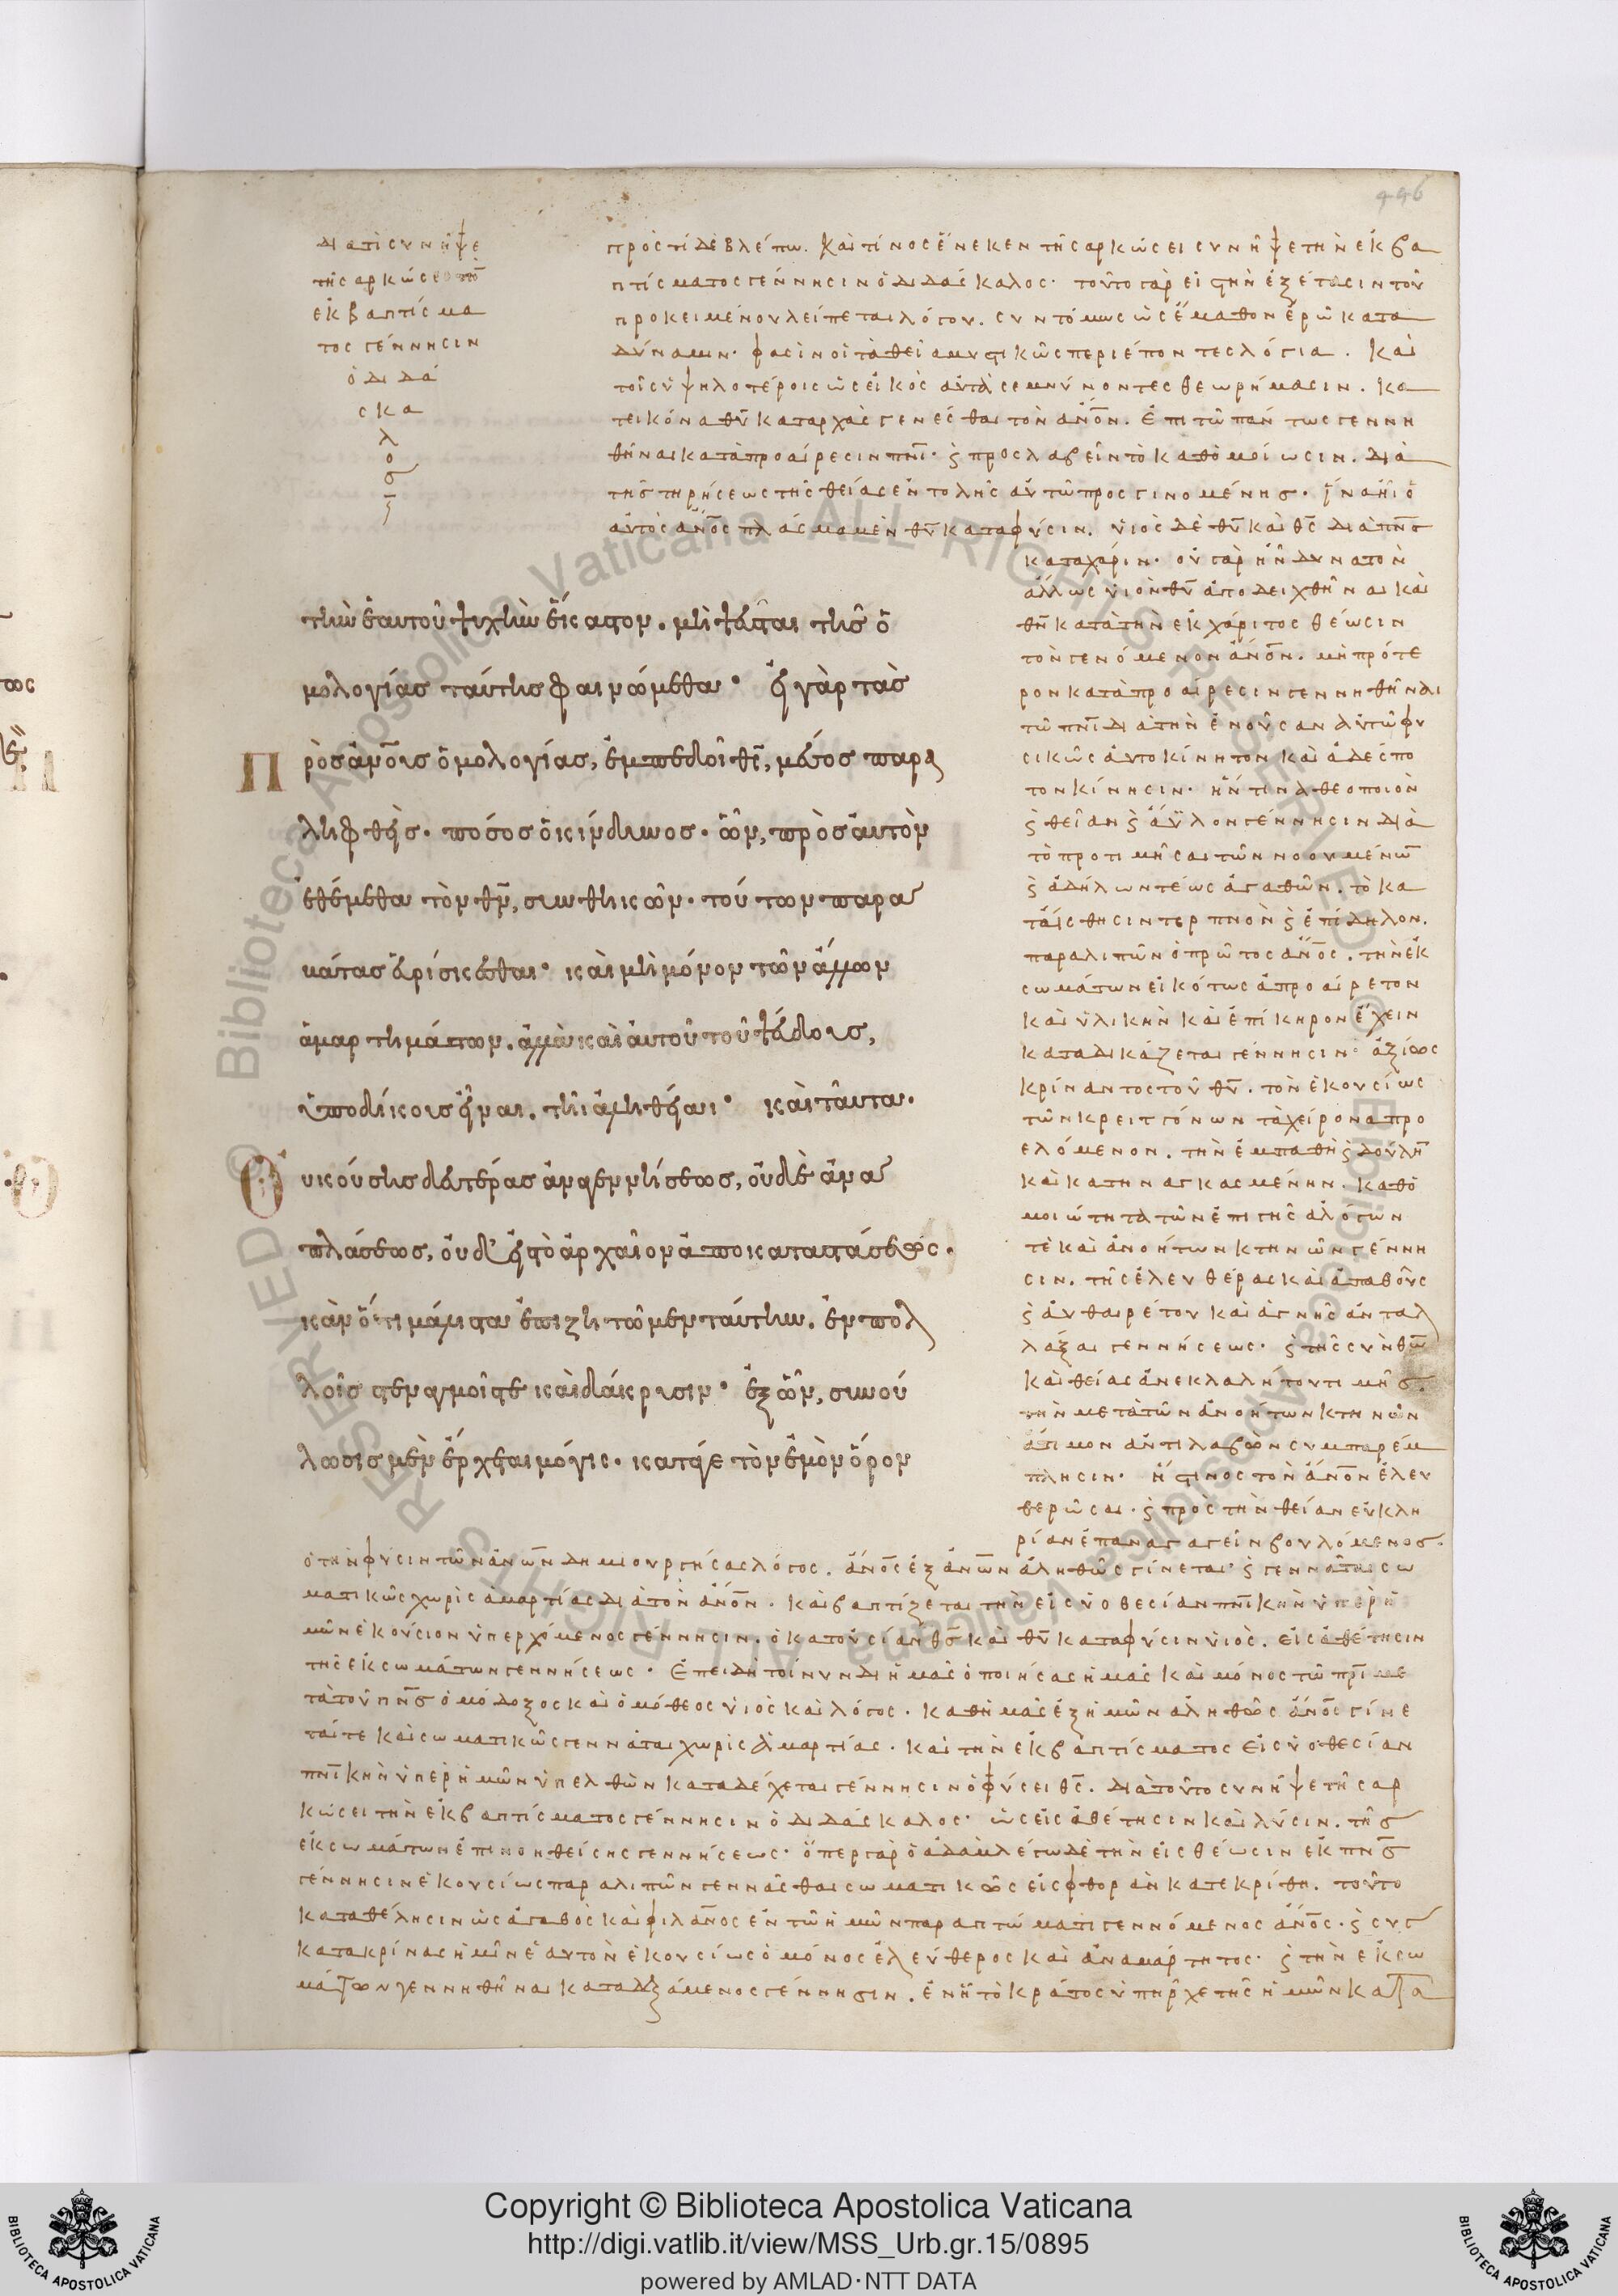 446
διατί συνῆψε
τῆ σαρκώσει τὴν
ἐκ βαπτίσμα
τος γέννησιν
ὁ διδά
σκα
λ
ο
σ
πρὸς τί δὲ βλέπω. καὶ τίνος ἕνεκεν τῆ σαρκώσει συνῆψε τὴν ἐκ βα
πτίσματος γέννησιν ὁ διδάσκαλος· τοῦτο γὰρ εἰς τὴν ἐξέτασιν τοῦ
προκειμένου λείπεται λόγου. συντόμως ὡς ἔμαθον ἐρῶ κατα
δύναμιν· φασὶν οἱ τὰ θεῖα μυστικῶς περιέποντες λόγια. καὶ
τοῖς ὑψηλοτέροις ὡς εἰκὸς αὐτὰ σεμνύνοντες θεωρήμασιν. κα
τεικόνα θυ καταρχὰς γενέσθαι τὸν ἄνον. ἐπὶ τῶ πάντως γεννη
θῆναι κατὰ προαίρεσιν πνι· ϗ προσλαβεῖν τὸ καθομοίωσιν. διὰ
τῆς τηρήσεως τῆς θείας ἐντολῆς αὐτῶ προσγινομένης. ἵνα ἦι ὁ
αὐτὸς ἄνος πλάσμα μὲν θυ καταφύσιν. υἱὸς δὲ θυ καὶ θς διὰ πνς
καταχάριν. οὐ γὰρ ἦν δυνατὸν
ἄλλως υἱὸν θυ ἀποδειχθῆναι καὶ
θν κατὰ τὴν ἐκ χάριτος θέωσιν
τὸν γενόμενον ἄνον. μὴ πρότε
ρον κατὰ προαίρεσιν γεννηθῆναι
τῶ πνι διὰ τὴν ἐνοῦσαν αὐτῶ φυ
σικῶς αὐτοκίνητον καὶ ἀδέσπο
τον κίνησιν· ἥν τινα θεοποιὸν
ϗ θείαν ϗ ἄϋλον γέννησιν διὰ
τὸ προτιμῆσαι τῶν νοουμένων
ϗ ἀδήλων τέως ἀγαθῶν. τὸ κα
τ αἴσθησιν τερπνὸν ϗ ἐπίδηλον.
παραλιπὼν ὁ πρῶτος ἄνος. τὴν ἐκ
σωμάτων εἰκότως ἀπροαίρετον
καὶ ὑλικὴν καὶ ἐπίκηρον ἔχειν
καταδικάζεται γέννησιν· ἀξίως
κρίναντος τοῦ θυ. τὸν ἑκουσίως
τῶν κρειττόνων τὰ χείρονα προ
ελόμενον. τὴν ἐμπαθῆ ϗ δούλην
καὶ κατηναγκασμένην. καθο
μοιότητα τῶν ἐπὶ γῆς ἀλόγων
τὲ καὶ ἀνοήτων κτηνῶν γέννη
σιν. τῆς ἐλευθέρας καὶ ἀπαθοῦς
ϗ αὐθαιρέτου καὶ ἁγνῆς ἀνταλ
λάξαι γεννήσεως· ϗ τῆς σὺν θω
καὶ θείας ἀνεκλαλήτου τιμῆς.
τὴν μετὰ τῶν ἀνοήτων κτηνῶν
ἄτιμον ἀντιλαβὼν συμπαρέκ
πλησιν· ἧς τινος τὸν ἄνον ἐλευ
θερῶσαι. ϗ πρὸς τὴν θείαν εὐκλη
ρίαν ἐπαναγαγεῖν βουλόμενος.
τὴν ἑαυτοῦ ψυχὴν ἕκαστον. μὴ ψεῦσται τῆς ὁ
μολογίας ταύτης φαινώμεθα· εἰ γὰρ τὰς
πρὸς ἀνοις ὁμολογίας, ἐμπεδοῖ θς, μέσος παρα
ληφθεὶς. πόσος ὁ κίνδυνος. ὧν, πρὸς αὐτὸν
ἐθέμεθα τὸν θν, συνθηκῶν. τούτων παρα
βάτας εὑρίσκεσθαι· καὶ μὴ μόνον τῶν ἄλλων
ἁμαρτημάτων. ἀλλὰ καὶ αὐτοῦ τοῦ ψεύδους,
ὑποδίκους εἶναι. τῆι ἀληθείαι· καὶ ταῦτα.
Οὐκ οὔσης δευτέρας ἀναγεννήσεως, οὐδὲ ἀνα
πλάσεως, οὐδ' εἰς τὸ ἀρχαῖον ἀποκαταστάσεως.
κἂν ὅτι μάλιστα ἐπιζητῶμεν ταύτην. ἐν πολ
λοῖς στεναγμοῖς τε καὶ δάκρυσιν· ἐξ ὧν, συνού
λωσις μὲν ἔρχεται μόγις. κατά γε τὸν ἐμὸν ὅρον
ὁ τὴν φύσιν τῶν ἀνων δημιουργήσας λόγος. ἄνος ἐξ ἀνων ἀληθῶς γίνεται· ϗ γεννᾶται σω
ματικῶς χωρὶς ἁμαρτίας διὰ τὸν ἄνον. καὶ βαπτίζεται τὴν εἰς υἱοθεσίαν πνικὴν ὑπὲρ ἡ
μῶν ἑκούσιον ὑπερχόμενος γέννησιν. ὁ κατουσίαν θς καὶ θυ καταφύσιν υἱὸς. εἰς ἀθέτησιν
τῆς ἐκ σωμάτων γεννήσεως. ἐπειδὴ τοίνυν δι ἡμᾶς ὁ ποιήσας ἡμᾶς καὶ μόνος τῶ πρι με
τὰ τοῦ πνς ὁμόδοξος καὶ ὁμόθεος υἱὸς καὶ λόγος. καθημᾶς ἐξ ἡμῶν ἀληθῶς ἄνος γίνε
ταί τε καὶ σωματικῶς γεννᾶται χωρὶς ἁμαρτίας. καὶ τὴν ἐκ βαπτίσματος εἰς υἱοθεσίαν
πνικὴν ὑπὲρ ἡμῶν ὑπελθὼν καταδέχεται γέννησιν ὁ φύσει θς. διὰ τοῦτο συνῆψε τῆ σαρ
κώσει τὴν ἐκ βαπτίσματος γέννησιν ὁ διδάσκαλος· ὡς εἰς ἀθέτησιν καὶ λύσιν. τῆς
ἐκ σωμάτων ἐπινοηθείσης γεννήσεως· ὅπερ γὰρ ὁ ἀδὰμ λέγω δὲ τὴν εἰς θέωσιν ἐκ πνς
γέννησιν ἑκουσίως παραλιπὼν γεννᾶσθαι σωματικῶς εἰς φθορὰν κατεκρίθη. τοῦτο
καταθέλησιν ὡς ἀγαθὸς καὶ φιλανος ἐν τῶ ἡμῶν παραπτώματι γενόμενος ἄνος. ϗ συγ
κατακρίνας ἡμῖν ἑαυτὸν ἑκουσίως ὁ μόνος ἐλεύθερος καὶ ἀναμάρτητος· ϗ τὴν ἐκ σω
μάτων γεννηθῆναι καταδεξάμενος γέννησιν. ἐν ἧ τὸ κράτος ὑπῆρχε τῆς ἡμῶν κατα
Copyright © Biblioteca Apostolica Vaticana
http://digi.vatlib.it/view/MSS_Urb.gr.15/0895
powered by AMLAD·NTT DATA
BIBLIOTECA APOSTOLICA VATICANA
BIBLIOTECA APOSTOLICA VATICANA
© Biblioteca Apostolica Vaticana ALL RIGHTS RESERVED
© Biblioteca Apostolica Vaticana ALL RIGHTS RESERVED